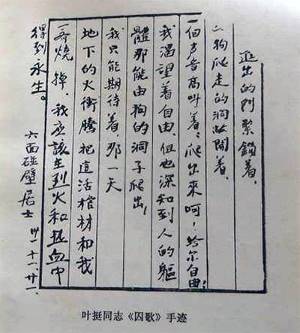 進出的門緊鎖着。
狗爬走的洞敞開着。
一個声音高叫着：爬出來呵！給尔自由！
我渴望着自由，但也深知到人的軀
體那能由狗的洞子爬出！
我只能期待着，那一天
地下的火衝騰把這活棺材和我
一齊燒掉，我应该在烈火和热血中
得到永生。
六面碰壁居士 卅一、十一、廿一
叶挺同志《囚歌》手迹